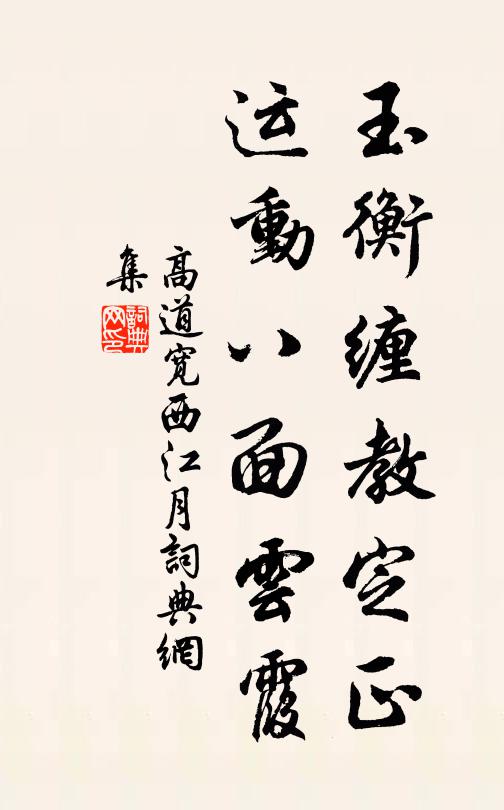 玉衡缠教定正
运動八面雲霞
高道宽西江月詞典網
集
詞典
网印